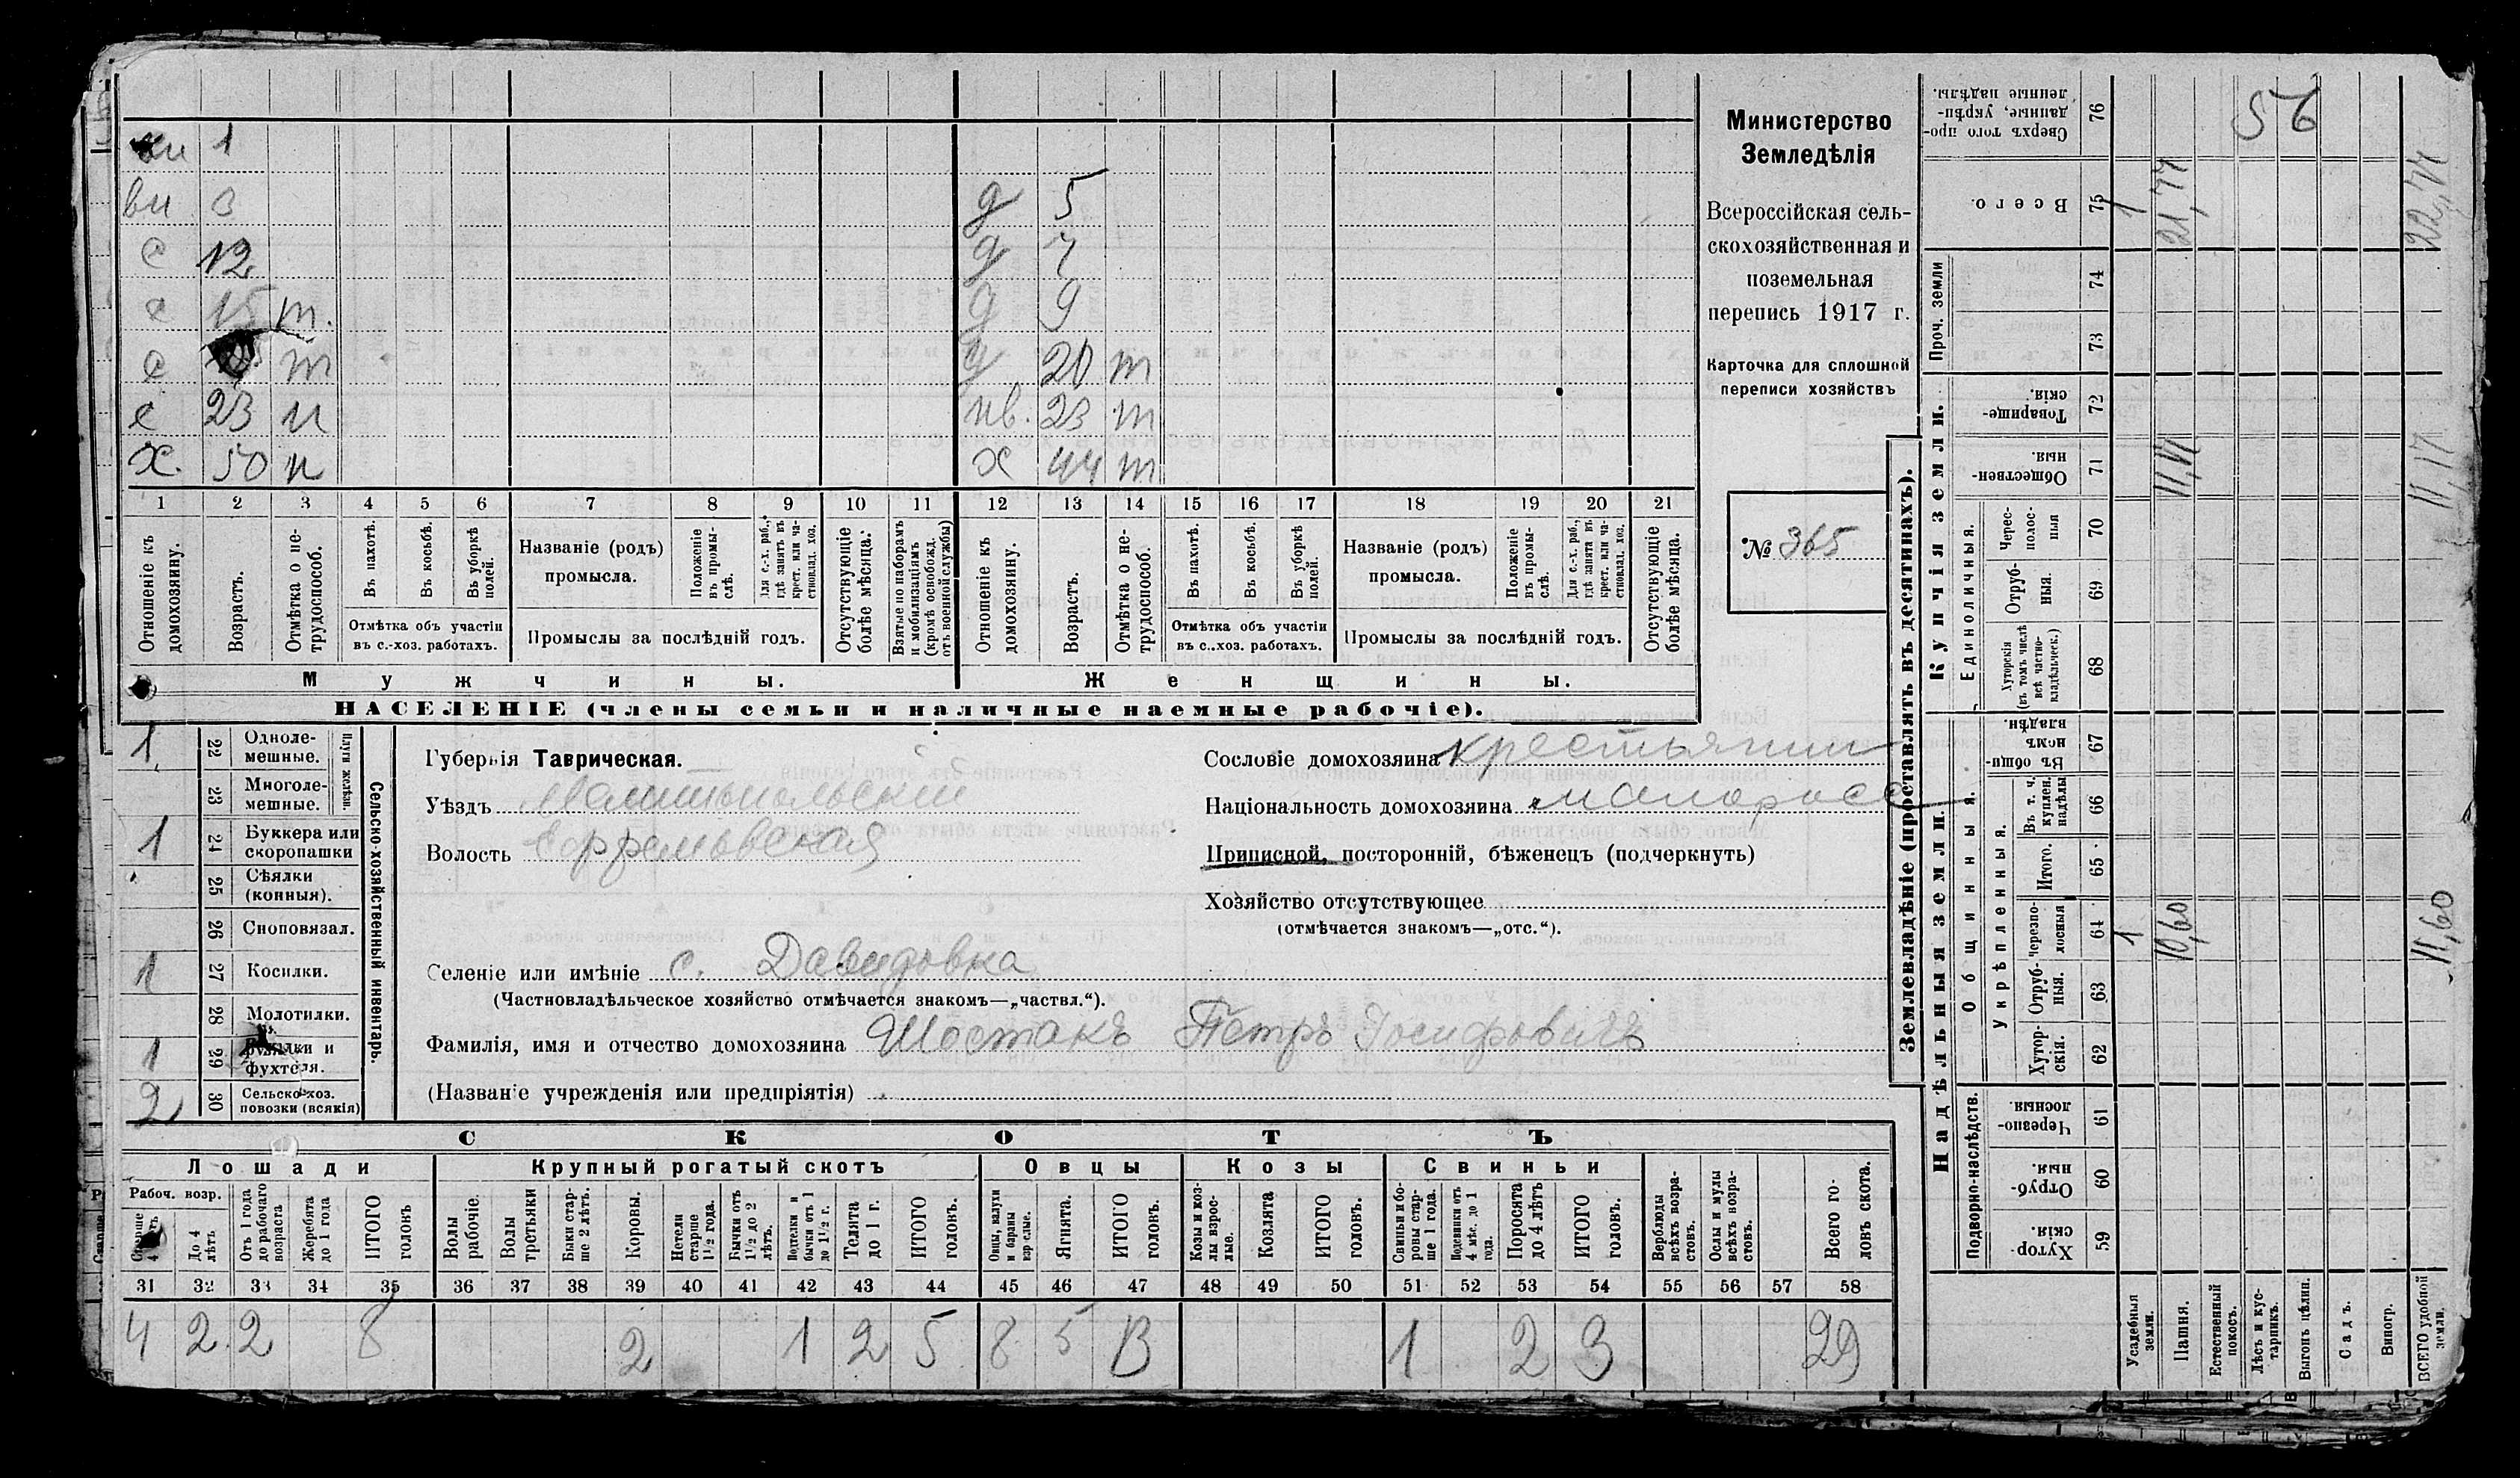 56
ви 1
ви 3 д 5
с 12 д 7
с 15 т. д 9
с т д 20 т
с 23 п нв. 23 т
х. 50 п х 44 т
1 2 3 4 5 6 7 8 9 10 11 12 13 14 15 16 17 18 19 20 21
Отношеніе къ домохозяину.
Возрастъ.
Отмѣтка о не-трудоспособ.
Въ пахотѣ.
Въ косьбѣ.
Въ уборкѣ полей.
Отмѣтка объ участіи въ с.-хоз. работахъ.
Названіе (родъ) промысла.
Положеніе въ промы-слѣ.
Для с.-х. раб., гдѣ занятъ въ крест. или ча-стновлад. хоз.
Промыслы за послѣдній годъ.
Отсутствующіе болѣе мѣсяца.
Взятые по наборамъ и мобилизаціямъ (кромѣ освобожд. отъ военной службы)
Отношеніе къ домохозяину.
Возрастъ.
Отмѣтка о не-трудоспособ.
Въ пахотѣ.
Въ косьбѣ.
Въ уборкѣ полей.
Отмѣтка объ участіи въ с..хоз. работахъ.
Названіе (родъ) промысла.
Положеніе въ промы-слѣ.
Для с.-х. раб., гдѣ занята въ крест. или ча-стновлад. хоз.
Промыслы за послѣдній годъ.
Отсутствующіе болѣе мѣсяца.
Мужчины. Женщины.
НАСЕЛЕНІЕ (члены семьи и наличные наемные рабочіе).
Министерство
Земледѣлія
Всероссійская сель-
скохозяйственная и
поземельная
перепись 1917 г.
Карточка для сплошной
переписи хозяйствъ
№ 365
1 22 Одноле-мешные.
23 Многоле-мешные.
Плуги желѣзн.
1 24 Буккера или скоропашки
25 Сѣялки (конныя).
26 Сноповязал.
1 27 Косилки.
28 Молотилки.
1 29 и фухтеля.
2 30 Сельско-хоз. повозки (всякія)
Сельско-хозяйственный инвентарь.
Губернія Таврическая.
Уѣздъ Мелитопольский
Волость Ефремовская
Селеніе или имѣніе с. Давидовка
(Частновладѣльческое хозяйство отмѣчается знакомъ—„частвл.“).
Фамилія, имя и отчество домохозяина Шостакъ Петръ Іосифовичъ
(Названіе учрежденія или предпріятія)
Сословіе домохозяина крестьянин
Національность домохозяина малоросс
Приписной, посторонній, бѣженецъ (подчеркнуть)
Хозяйство отсутствующее
(отмѣчается знакомъ—„отс.“).
СКОТЪ
Лошади Крупный рогатый скотъ Овцы Козы Свиньи
Рабоч. возр.
Старше 4 лѣтъ
До 4 лѣтъ
Отъ 1 года до рабочаго возраста
Жеребята до 1 года
ИТОГО головъ
Волы рабочіе.
Волы третьяки
Быки стар-ше 2 лѣтъ.
Коровы.
Нетели старше 1½ года.
Бычки отъ 1½ до 2 лѣтъ.
Подтелки и бычки отъ 1 до 1½ г.
Телята до 1 г.
ИТОГО головъ.
Овцы, валухи и бараны взрослые.
Ягнята.
ИТОГО головъ.
Козы и коз-лы взрос-лые.
Козлята
ИТОГО головъ.
Свиньи и бо-ровы стар-ше 1 года.
Подсвинки отъ 4 мѣс. до 1 года.
Поросята до 4 лѣтъ
ИТОГО головъ.
Верблюды всѣхъ возра-стовъ.
Ослы и мулы всѣхъ возра-стовъ.
Всего го-ловъ скота.
31 32 33 34 35 36 37 38 39 40 41 42 43 44 45 46 47 48 49 50 51 52 53 54 55 56 57 58
4 2 2 8 2 1 2 5 8 5 13 1 2 3 29
Землевладѣніе (проставлять въ десятинахъ).
Надѣльныя земли. Купчія земли. Проч. земли
Подворно-наслѣдств. Общинныя. Единоличныя.
Укрѣпленныя.
Хутор-скія. 59
Отруб-ныя. 60
Черезпо-лосныя. 61
Хутор-скія. 62
Отруб-ныя. 63
Черезпо-лосныя 64 1 10,60 11,60
Итого. 65
Въ т. ч. куплен. надѣлы 66
Въ общи-номъ владѣн. 67
Хуторскія (въ томъ числѣ всѣ частно-владѣльческ.) 68
Отруб-ныя. 69
Черес-полос-ныя 70
Обществен-ныя. 71 11,17 11,17
Товарище-скія. 72
73
74
Всего. 75 1 21,77 22,77
Сверхъ того про-данные, укрѣп-ленные надѣлы. 76
Усадебныя земли.
Пашня.
Естественный покосъ.
Лѣсъ и кус-тарникъ.
Выгонъ цѣлин.
Садъ.
Виногр.
ВСЕГО удобной земли.